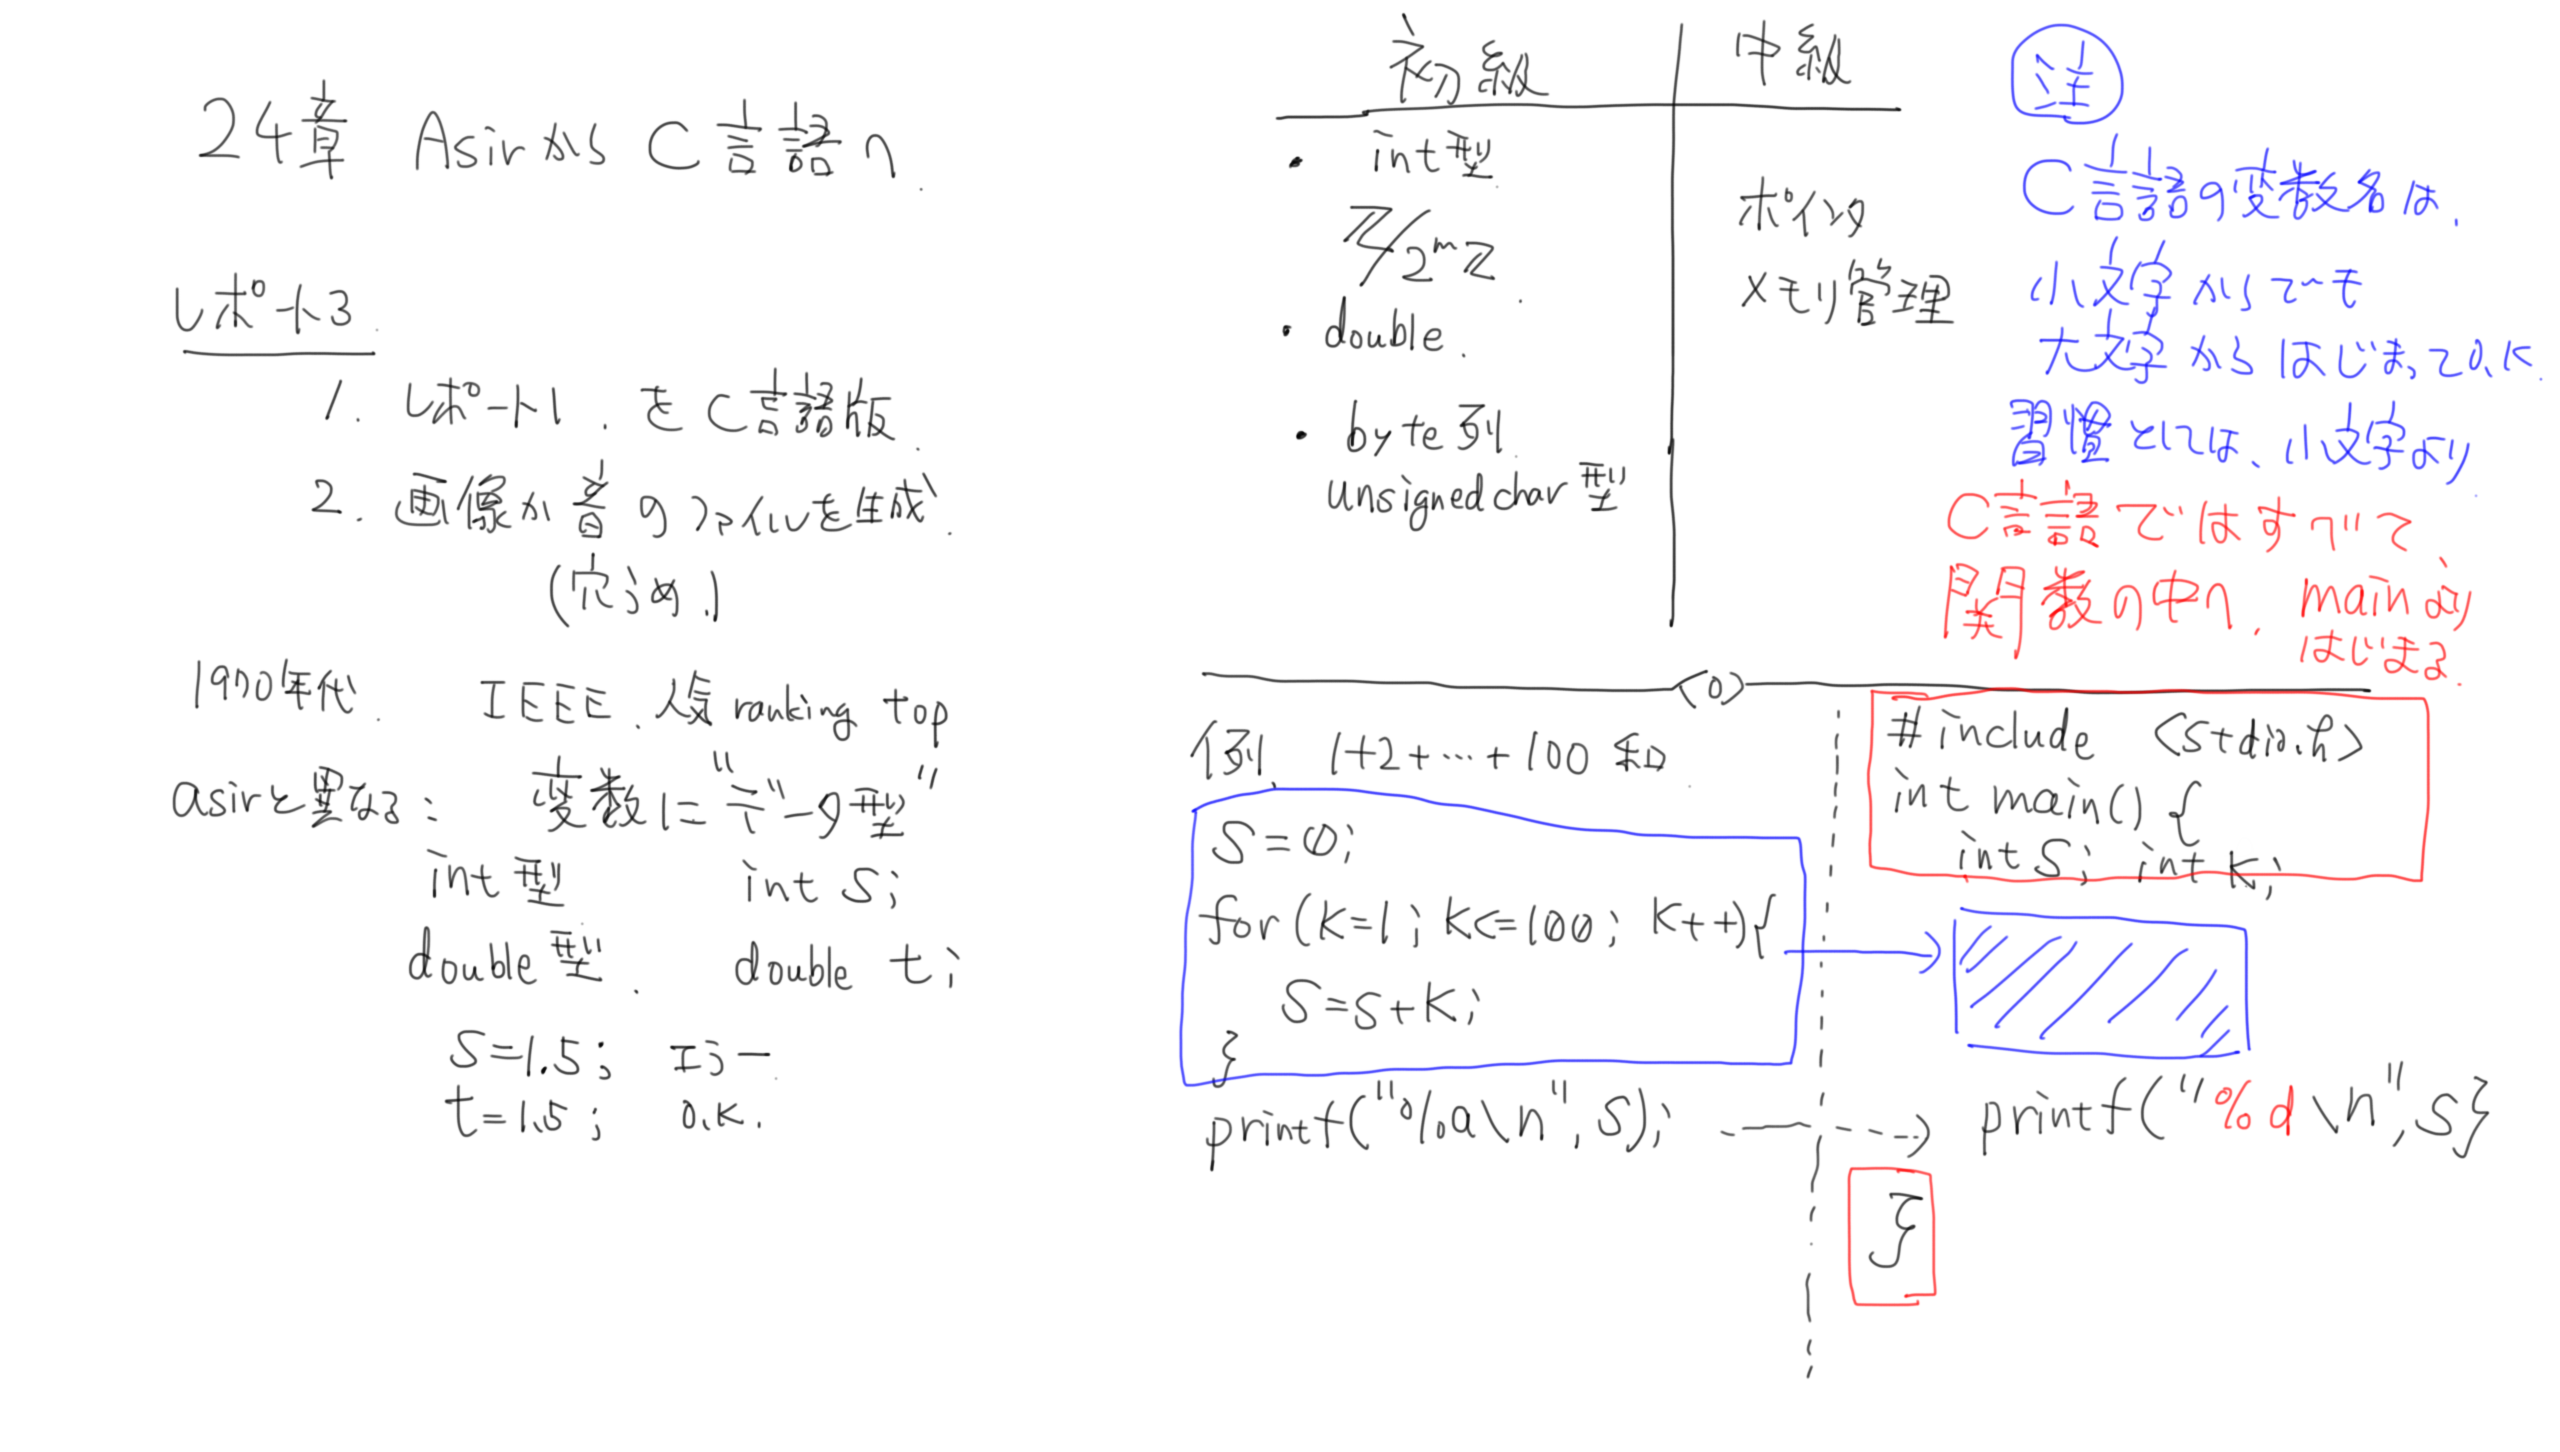 24章 AsirからC言語へ.
レポート3.
1. レポート1. をC言語版.
2. 画像か音のファイルを生成.
(穴うめ.)
1970年代. IEEE. 人気 ranking top
asirと異なる: 変数に"データ型"
int型 int S;
double型. double t;
S=1.5; エラー
t=1.5; O.K.
初級 中級
・ int型
Z/2^mZ
・ double.
・ byte列.
unsigned char型
ポインタ
メモリ管理
注
C言語の変数名は.
小文字からでも
大文字からはじまってO.K.
習慣としては、小文字より.
C言語ではすべて、
関数の中へ. mainより
はじまる.
<0>
例. 1+2+…+100 和.
S=0;
for (K=1; K<=100; K++){
S=S+K;
}
printf("%a\n", S);
#include <stdio.h>
int main() {
int S; int K;
printf("%d\n", S}
}